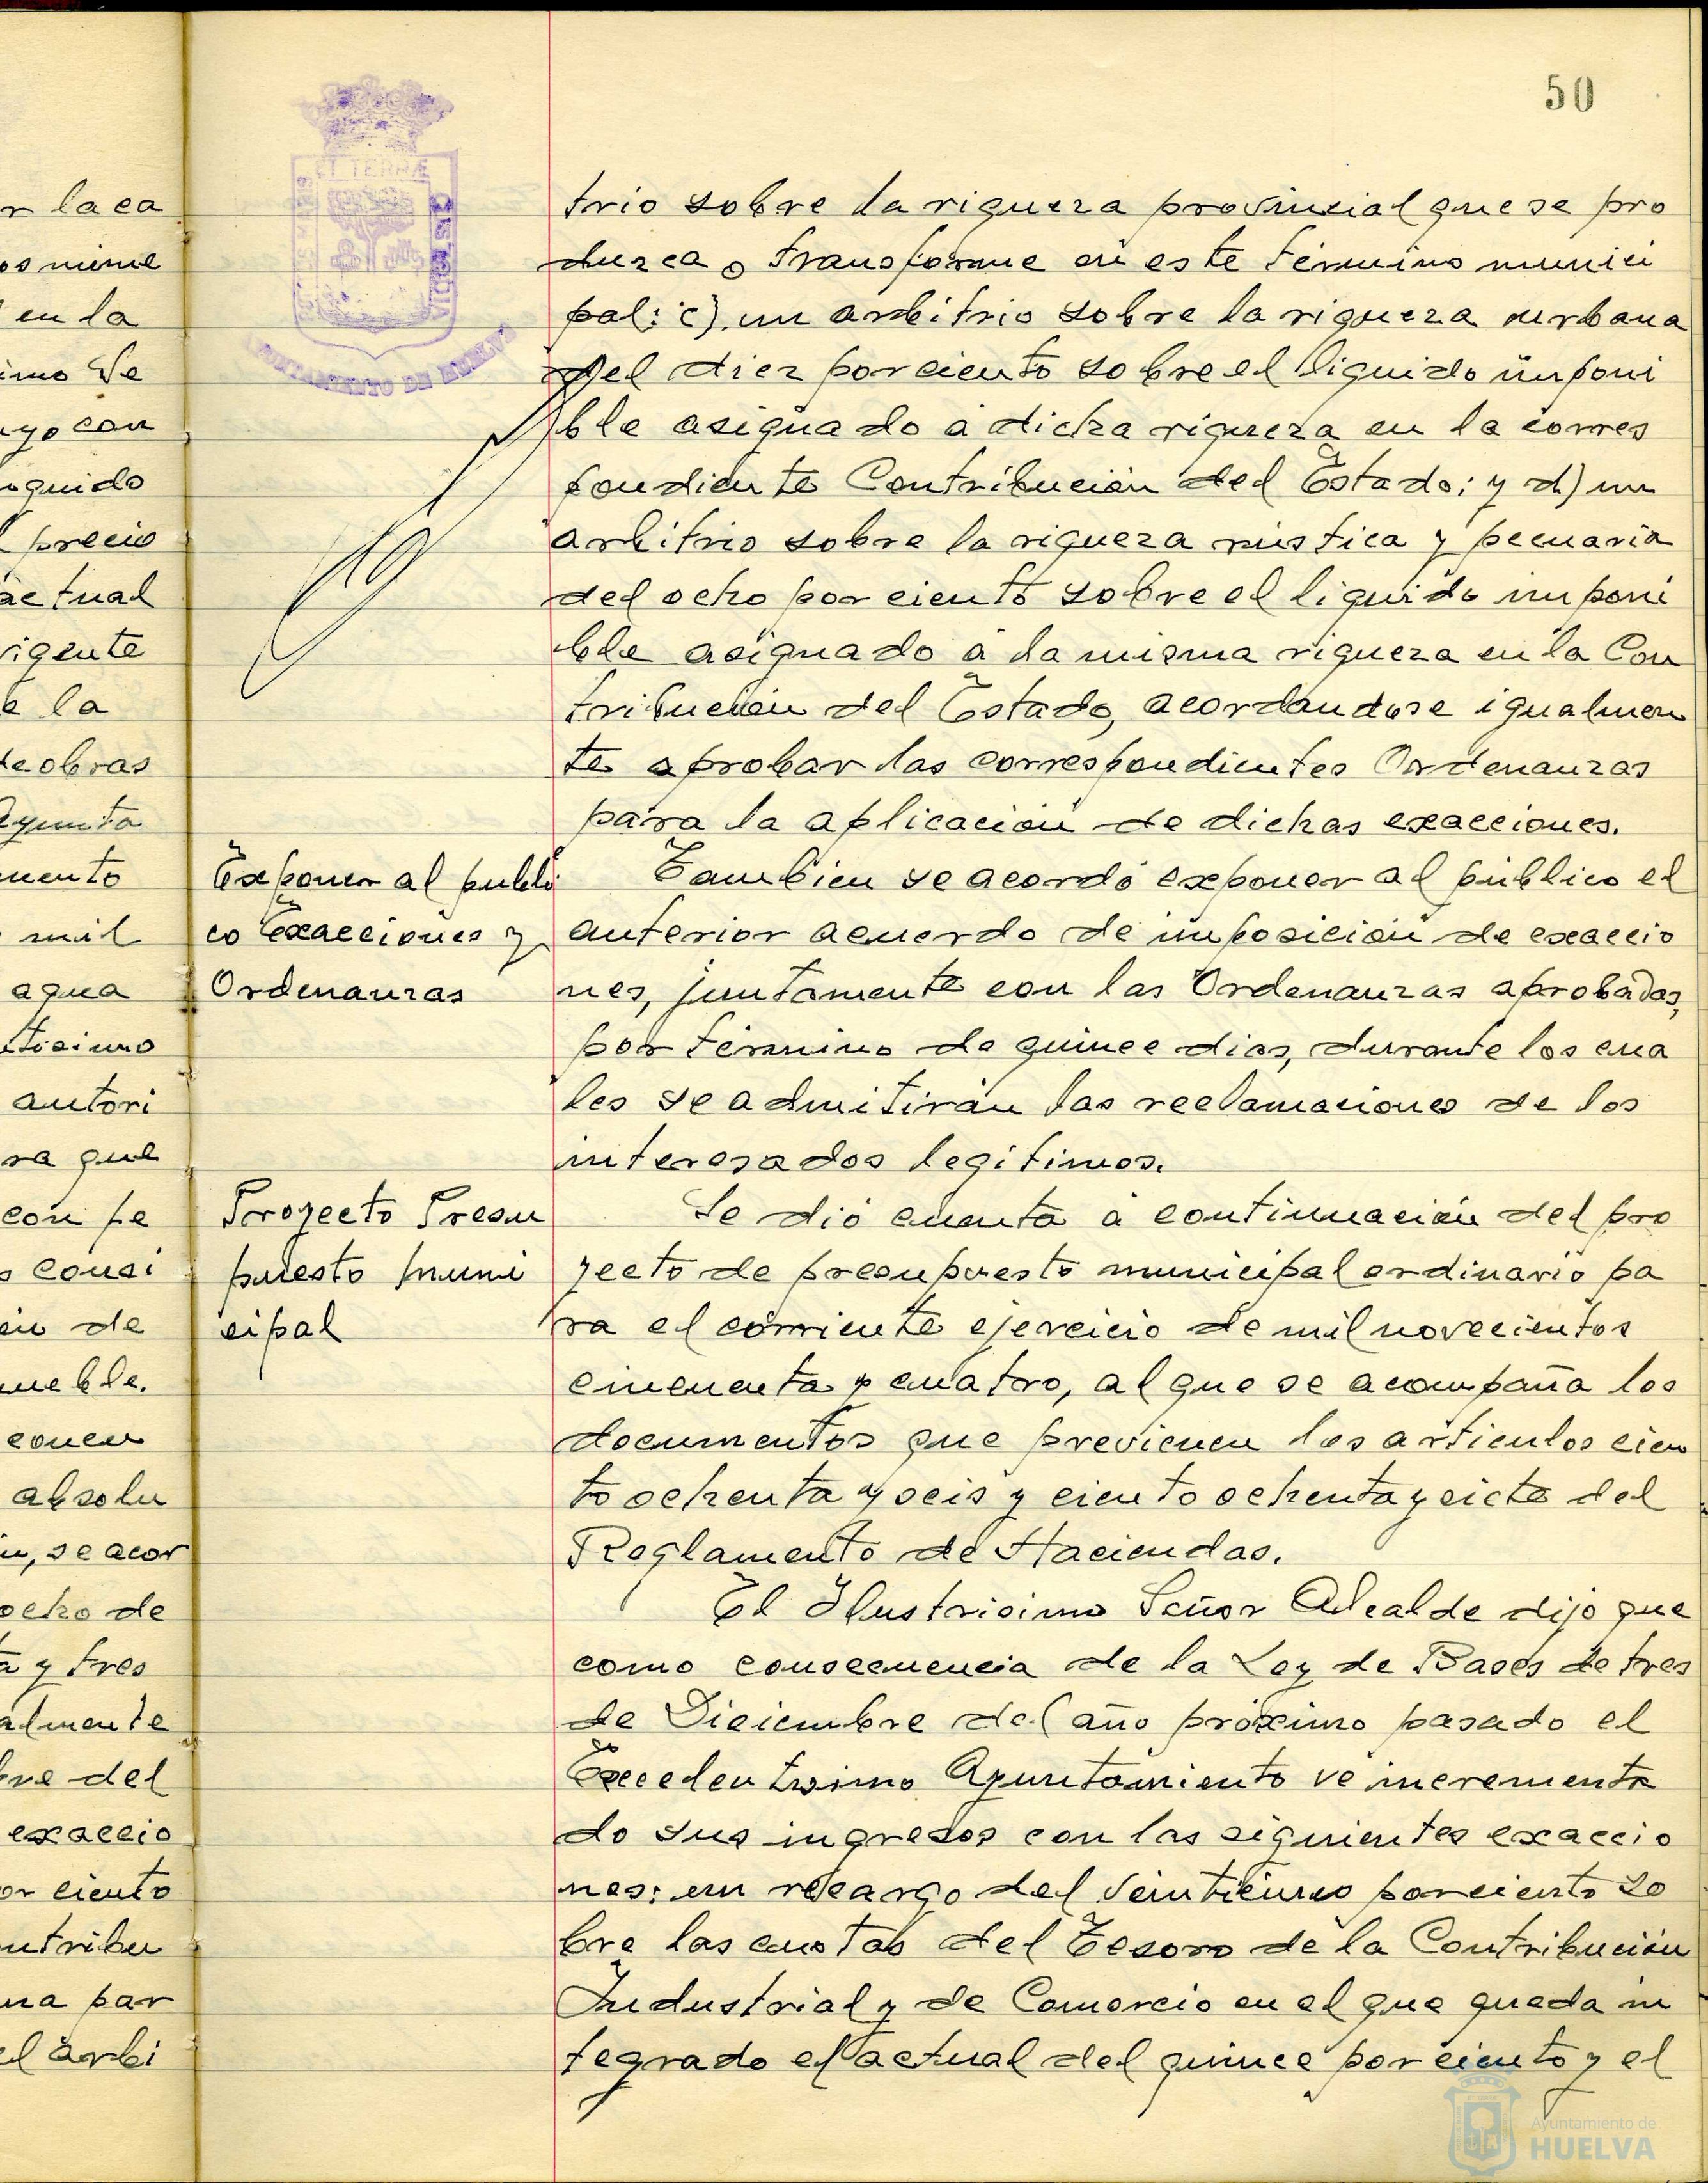 50
r la ca
os mime
en la
imo Se
yo con
quido
precio
actual
igente
e la
te obras
Ayunta
mento
mil
agua
ticimo
autori
ra que
con pe
s consi
en de
mueble.
concu
absolu
n, se acor
ocho de
a y tres
almente
bre del
exaccio
or ciento
ntribu
na par
el arbi
ET TERRÆ
AYUNTAMIENTO DE HUELVA
trio sobre la riqueza provincial que se pro
duzca o transforme en este término munici
pal: c), un arbitrio sobre la riqueza urbana
del diez por ciento sobre el líquido imponi
ble asignado a dicha riqueza en la corres
pondiente Contribución del Estado; y d) un
arbitrio sobre la riqueza rústica y pecuaria
del ocho por ciento sobre el líquido imponi
ble asignado a la misma riqueza en la Con
tribución del Estado, acordándose igualmen
te aprobar las correspondientes Ordenanzas
para la aplicación de dichas exacciones.
Exponer al públi
co Exacciones y
Ordenanzas
Tambien se acordó exponer al público el
anterior acuerdo de imposición de exaccio
nes, juntamente con las Ordenanzas aprobadas,
por término de quince dias, durante los cua
les se admitirán las reclamaciones de los
interesados legítimos.
Proyecto Presu
puesto muni
cipal
Se dió cuenta a continuación del pro
yecto de presupuesto municipal ordinario pa
ra el corriente ejercicio de mil novecientos
cincuenta y cuatro, al que se acompaña los
documentos que previenen los artículos cien
to ochenta y seis y ciento ochenta y siete del
Reglamento de Haciendas.
El Ilustrisimo Señor Alcalde dijo que
como consecuencia de la Ley de Bases de tres
de Diciembre del año próximo pasado el
Excelentisimo Ayuntamiento ve incrementa
do sus ingresos con las siguientes exaccio
nes: un recargo del veinticinco por ciento so
bre las cuotas del Tesoro de la Contribución
Industrial y de Comercio en el que queda in
tegrado el actual del quince por ciento y el
Ayuntamiento de
HUELVA